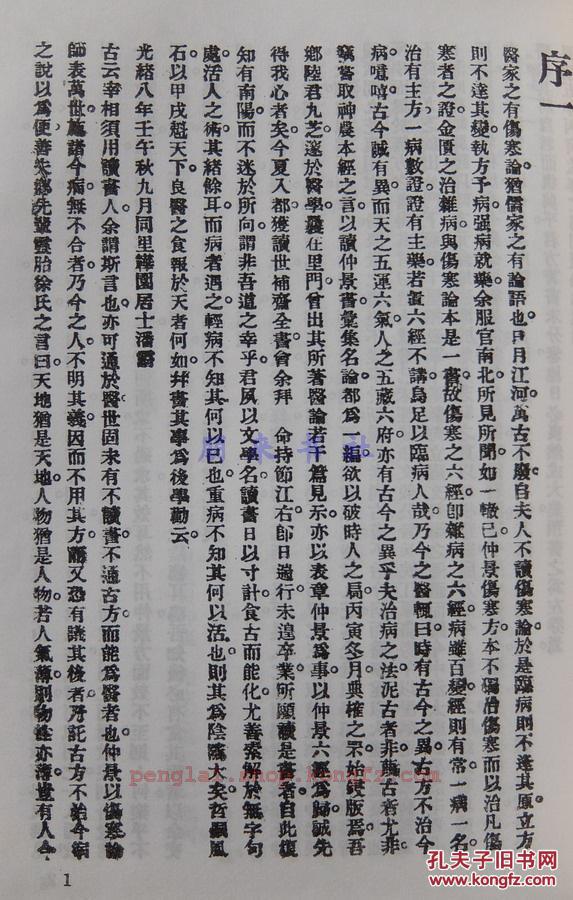 序一
醫家之有傷寒論猶儒家之有論語也日月江河萬古不廢自夫人不讀傷寒論於是臨病則不達其原立方
則不達其變執方予病强病就藥余服官南北所見所聞如一轍已仲景傷寒方本不獨治傷寒而以治凡傷
寒者之證金匱之治雜病與傷寒論本是一書故傷寒之六經卽雜病之六經病雖百變經則有常一病一名
治有主方一病數證證有主藥若置六經不講烏足以臨病人哉乃今之醫輒曰時有古今之異古方不治今
病噫嘻古今誠有異而天之五運六氣人之五藏六府亦有古今之異乎夫治病之法泥古者非蔑古者尤非
竊嘗取神農本經之言以讀仲景書彙集名論都爲一編欲以破時人之扃丙寅冬月典榷之罘始鋟版焉吾
鄉陸君九芝邃於醫學曩在里門曾出其所著醫論若干篇見示亦以表章仲景爲事以仲景六經爲歸誠先
得我心者矣今夏入都獲讀世補齋全書會余拜 命持節江右卽日遄行未遑卒業所願讀是書者自此復
知有南陽而不迷於所向謂非吾道之幸乎君夙以文學名讀書日以寸計食古而能化尤善索解於無字句
處活人之術其緒餘耳而病者遇之輕病不知其何以已也重病不知其何以活也則其爲陰隲大矣哲嗣鳳
石以甲戌魁天下良醫之食報於天者何如幷書其事爲後學勸云
光緒八年壬午秋九月同里韡園居士潘霨
古云宰相須用讀書人余謂斯言也亦可通於醫世固未有不讀書不通古方而能爲醫者也仲景以傷寒論
師表萬世施諸今病無不合者乃今之人不明其義因而不用其方而又恐有議其後者乃託古方不治今病
之說以爲便善夫鄉先輩靈胎徐氏之言曰天地猶是天地人物猶是人物若人氣薄則物性亦薄豈有人今
1
周末书社
penglai.shop.kongfz.com
孔夫子旧书网
www.kongfz.com